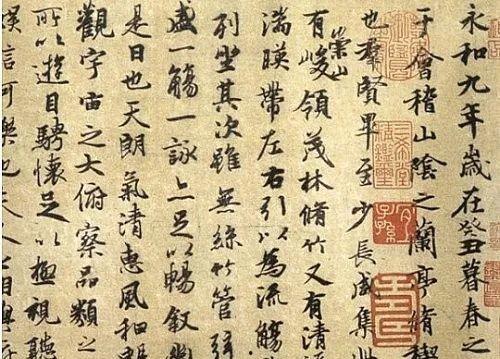 永和九年歲在癸丑暮春之
于會稽山陰之蘭亭脩禊
也羣賢畢至少長咸集
有崇山峻領茂林脩竹又有清
湍暎帶左右引以為流觴
列坐其次雖無絲竹管弦
盛一觴一詠亦足以暢敘幽
是日也天朗氣清惠風和暢
觀宇宙之大俯察品類之
所以遊目騁懷足以極視聽
娛信可樂也夫人之相與
宜子孫